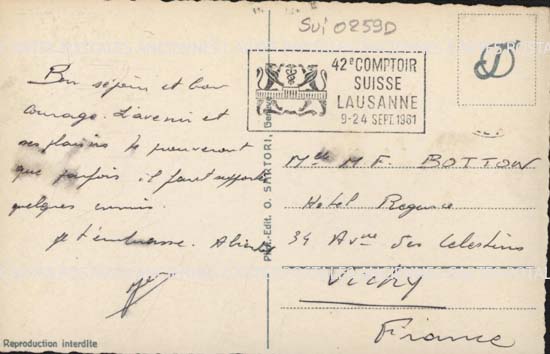 Sui 0259D
42e COMPTOIR
SUISSE
LAUSANNE
9-24 SEPT. 1961
Bon séjour et bon
courage. L'avenir et
ses plaisirs te prouveront
que parfois il faut supporter
quelques ennuis.
je t'embrasse. A bientôt
Phot.-Edit. O. SARTORI, Genève
Mlle M F. BOTTON
Hotel Regence
34 Avue des Celestins
Vichy
France
Reproduction interdite